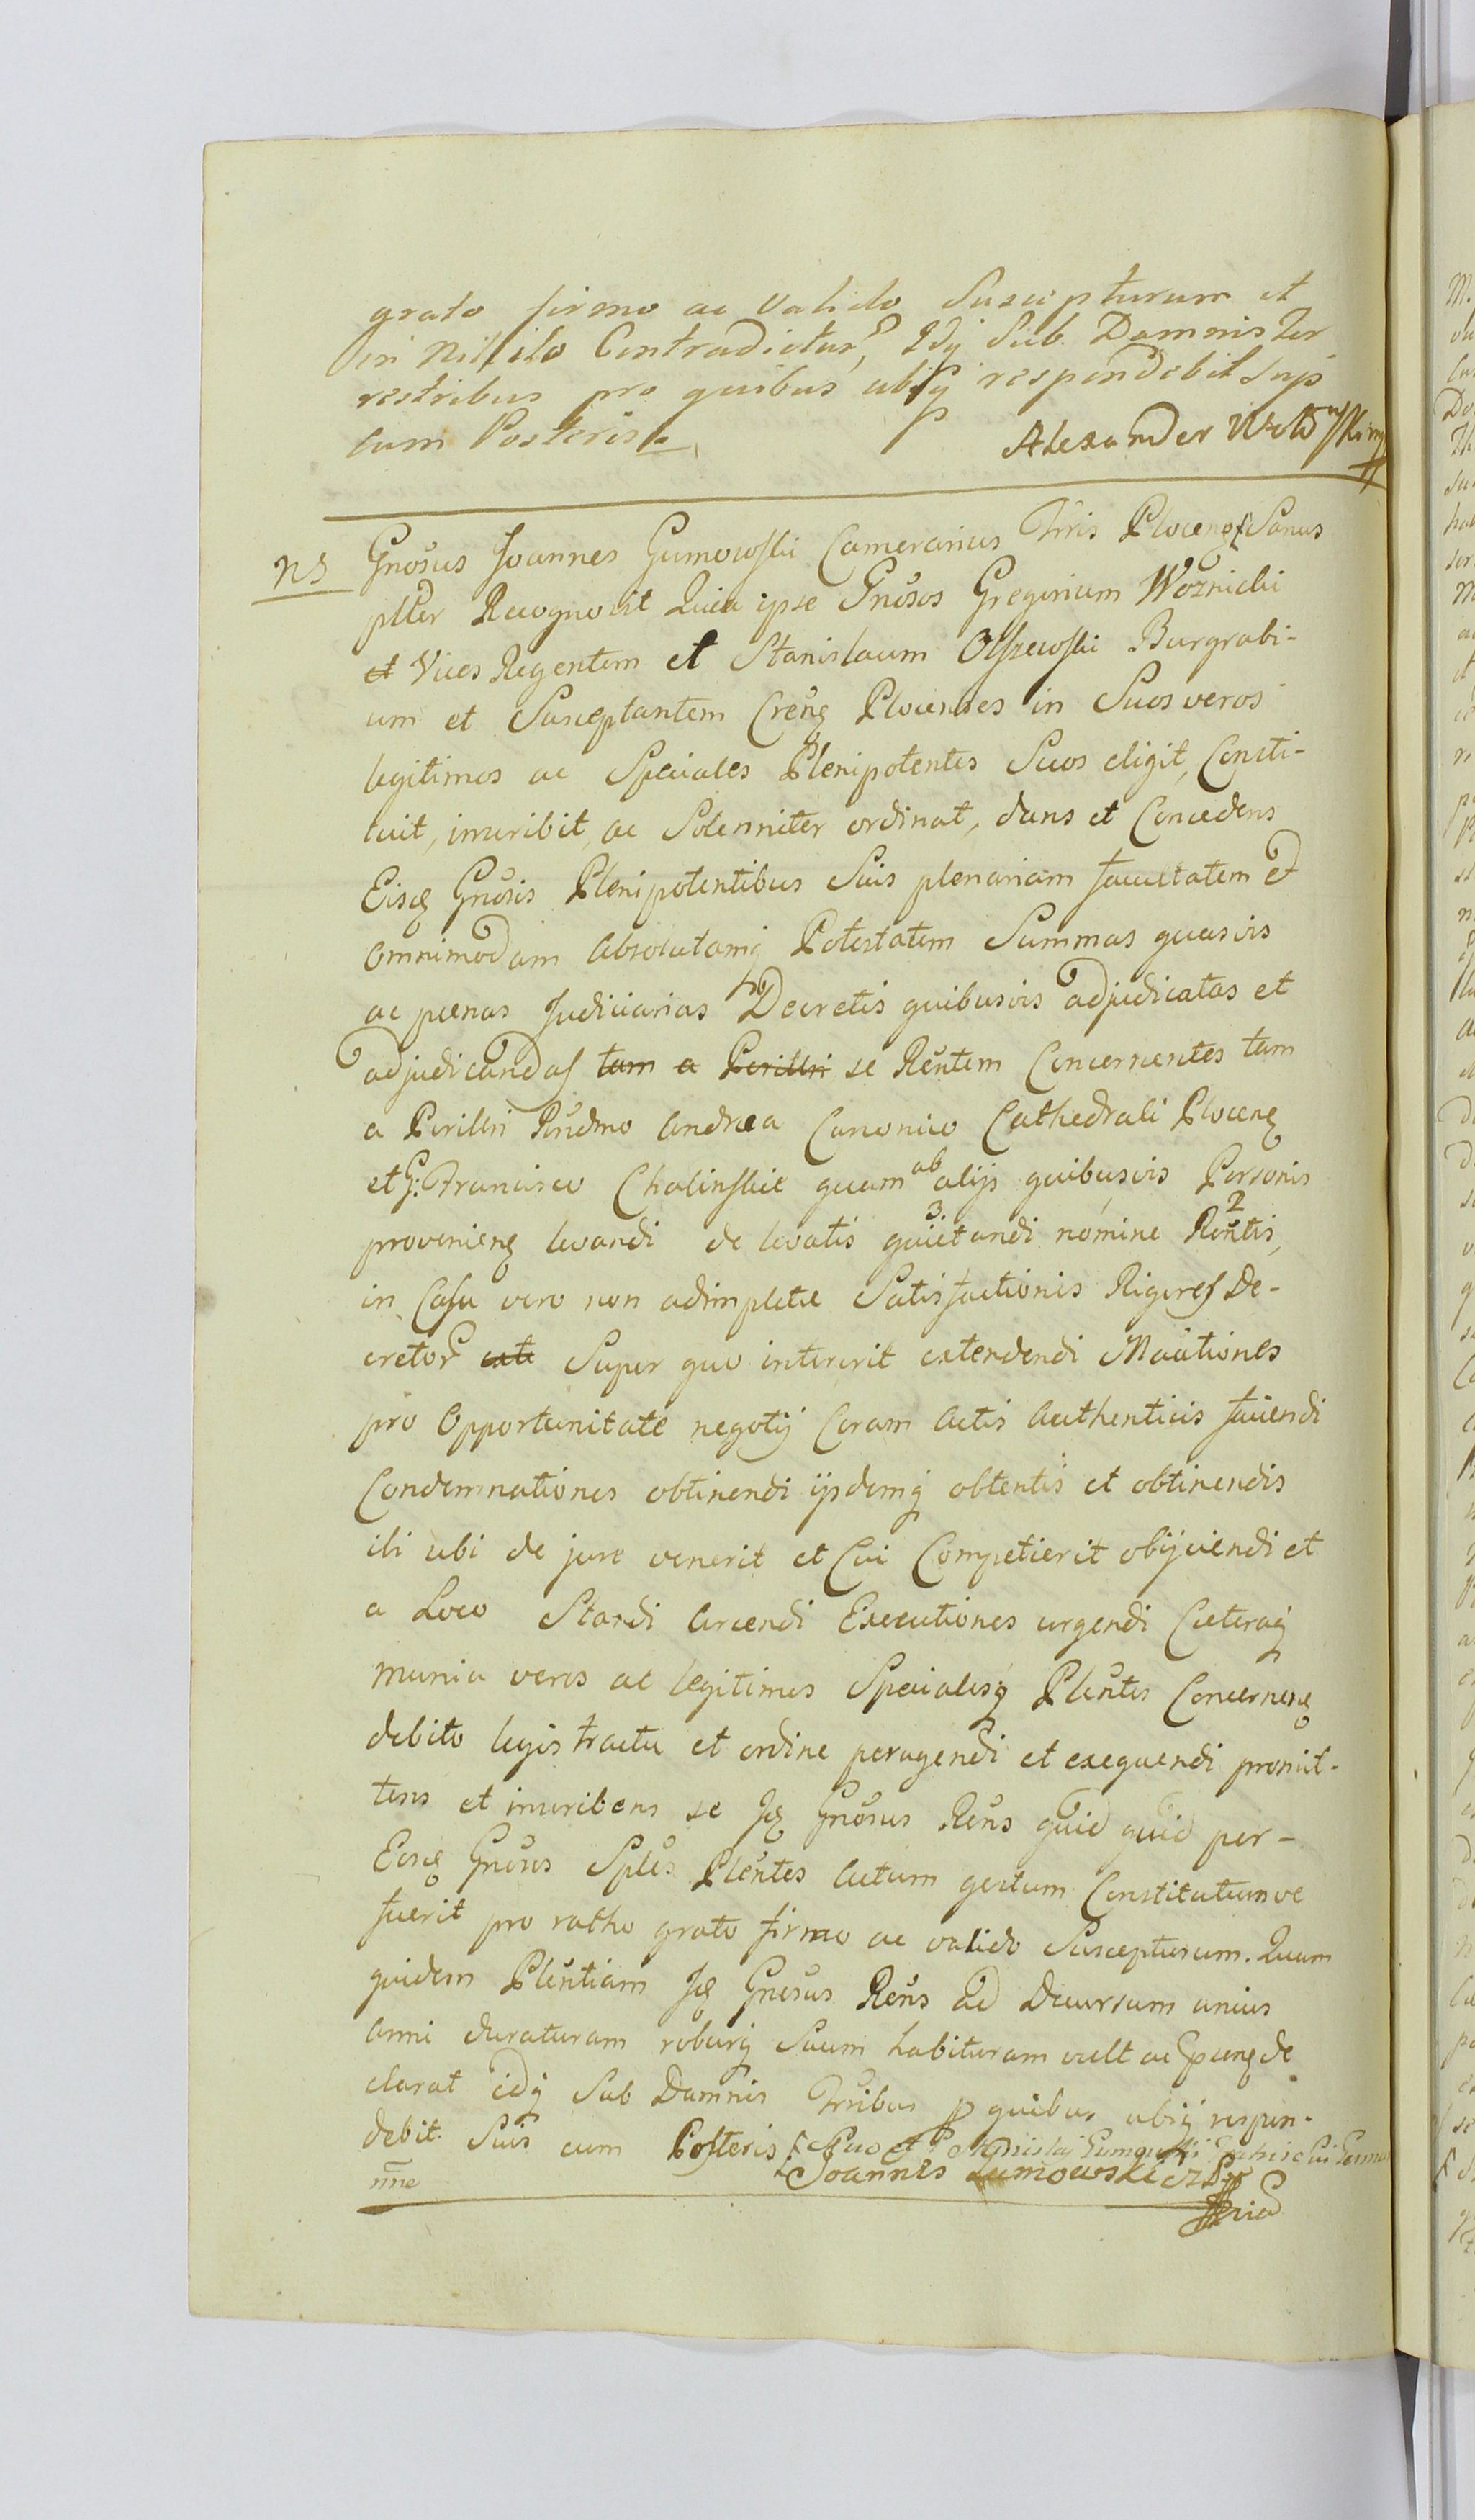 grato firmo ac valido Suscepturum et
in Nihilo Contradictur, Idq Sub Damnis Ter
restribus pro quibus ubiq respondebit Sup
cum Posteris
Alexander
ns Gnosus Joannes Gumowski Camerarius Trris Plocens Sanus
ptter Recognovit Quia ipse Gnosos Gregorium Woznicki
et Vices Regentem et Stanislaum Olszewski Burgrabi-
um et Susceptantem Crens Plocenses in Suos veros
legitimos ac Speciales Plenipotentes Suos eligit, Consti-
tuit, inscribit, ac Solenniter ordinat, dans et Concedens
Eisd Gnosis Plenipotentibus Suis plenariam facultatem et
omnimodam absolutamq Potestatem Summas quasvis
ac pœnas Judiciarias Decretis quibusvis adjudicatas et
adjudicandas tam a Perillri se Rentem Concernentes tam
a Perillri Rndmo Andrea Canonico Cathedrali Plocens
et G: Francisco Chalinskie quam ab alijs quibusvis Personis
proveniens levandi de levatis 3. quietandi nomine 2 Rentis,
in Casu vero non adimpletæ Satisfactionis Rigores De-
cretor exte Super quo intererit extendendi Maationes
pro Opportunitate negotij Coram Actis Authenticis faciendi
Condemnationes obtinendi ijsdemq obtentis et obtinendis
ibi ubi de jure venerit et Cui Competierit obijciendi et
a Loco Standi arcendi Executiones urgendi Cæteraq
munia veros ac legitimos Specialesq Plentes Concernens
debito legis tractu et ordine peragendi et exequendi promit-
tens et inscribens se Id Gnosus Rens quid quid per-
Eosd Gnosos Sples Plentes Actum gestum Constitutumve
fuerit pro ratho grato firmo ac valido Suscepturum. Quam
quidem Plentiam Id Gnosus Rens ad Decursum unius
Anni duraturam roburq Suum habituram vult ac Epcens de
clarat idq Sub Damnis Trribus p quibus ubiq respon-
debit Suis cum Posteris Suo et Gumowski Fratris Sui Germa
nne Joannes Gumowski